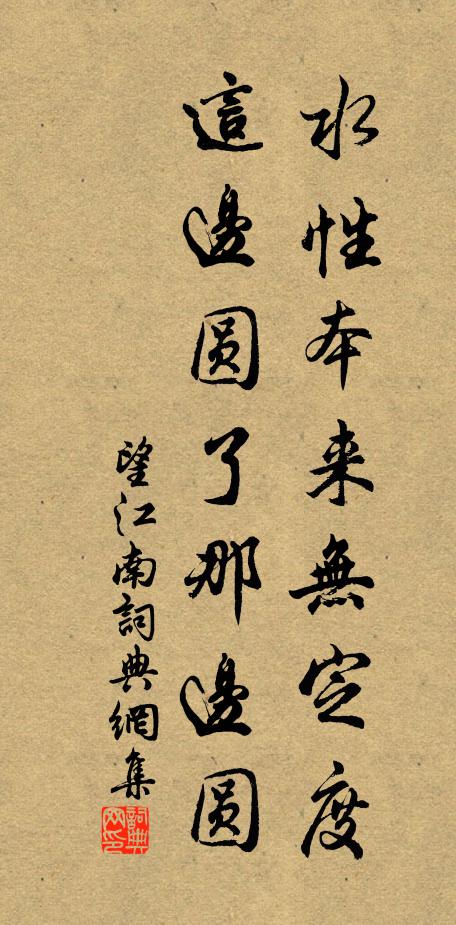 水性本来無定度
這邊圓了那邊圓
望江南詞典網集
詞典
網印